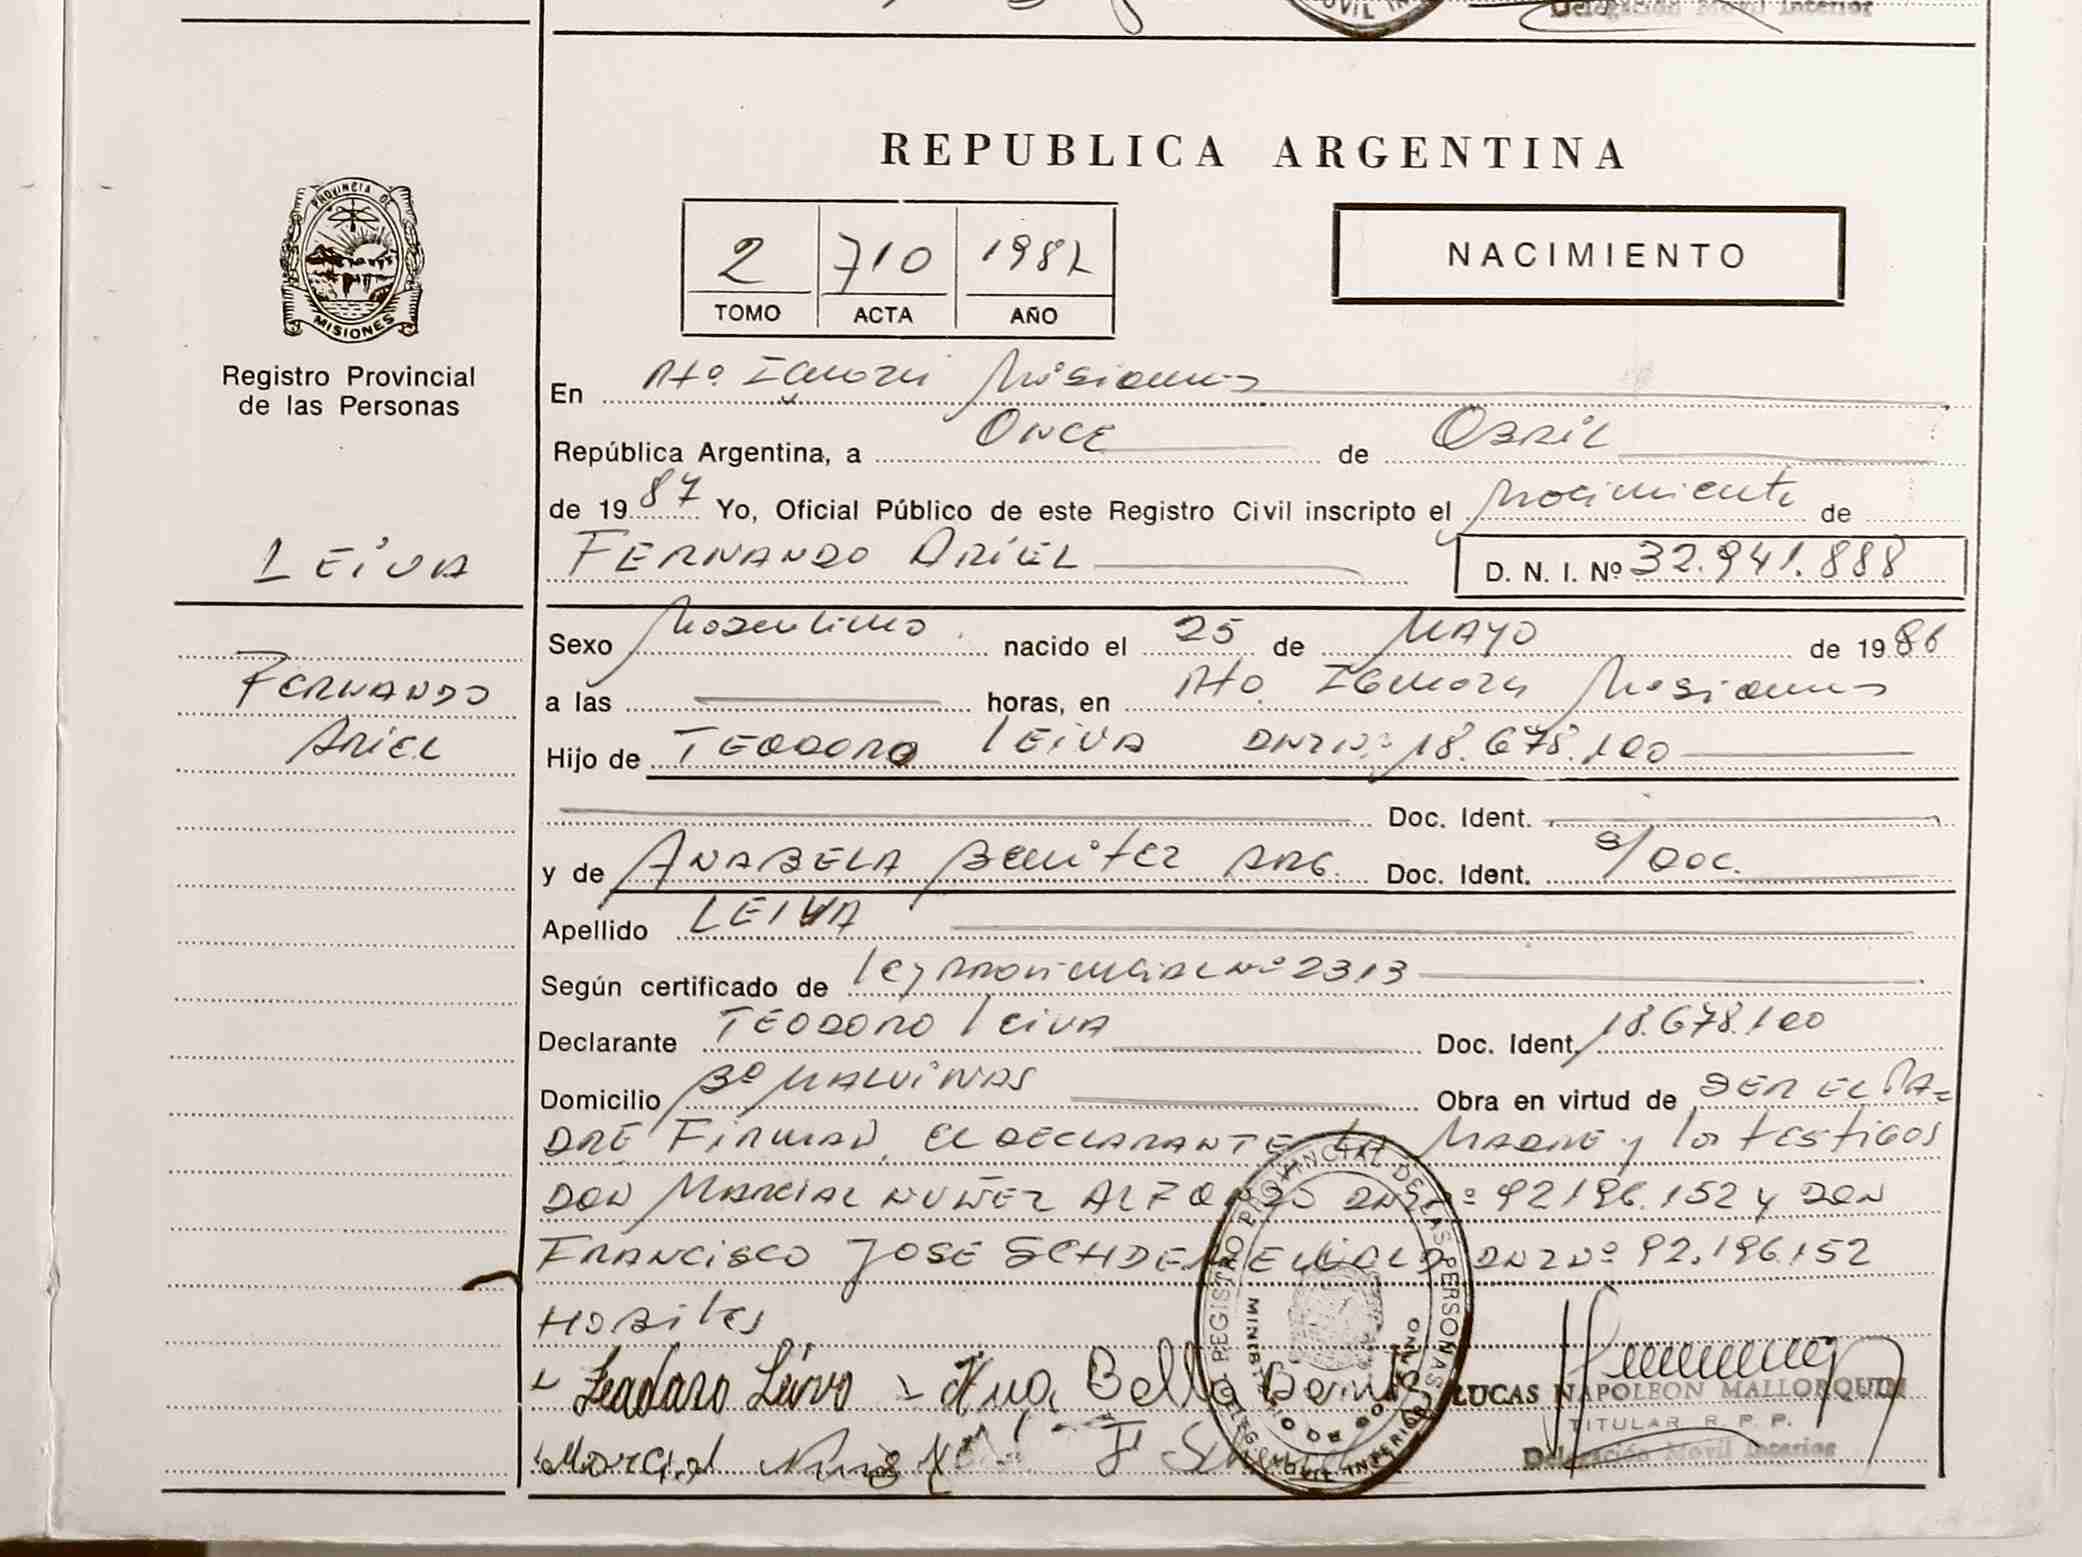 Delegación Móvil Interior
REPUBLICA ARGENTINA
PROVINCIA DE
MISIONES
Registro Provincial
de las Personas
2 710 1987
TOMO ACTA AÑO
NACIMIENTO
En Pto. Iguazú Misiones
República Argentina, a ONCE de Abril
de 1987 Yo, Oficial Público de este Registro Civil inscripto el Nacimiento de
LEIVA
FERNANDO ARIEL D. N. I. Nº 32.941.888
FERNANDO
ARIEL
Sexo Masculino. nacido el 25 de MAYO de 1986
a las horas, en Pto. Iguazú Misiones
Hijo de TEODORO LEIVA DNI Nº 18.678.100
Doc. Ident.
y de ANABELA Benitez ARG. Doc. Ident. S/DOC.
Apellido LEIVA
Según certificado de Ley Provincial Nº 2313
Declarante TEODORO LEIVA Doc. Ident. 18.678.100
Domicilio Bº MALVINAS Obra en virtud de SER EL PA=
DRE FIRMAN, EL DECLARANTE LA MADRE y los testigos
DON MARCIAL NUÑEZ DNI Nº 92196.152 y DON
FRANCISCO JOSE DNI Nº 92.196152
HABILES
Teodoro Leiva - Ana Bella Benit
Marcial Nuñez F
REGISTRO PROVINCIAL DE LAS PERSONAS
LUCAS NAPOLEON MALLORQUIN
TITULAR R. P. P.
Delegación Móvil Interior